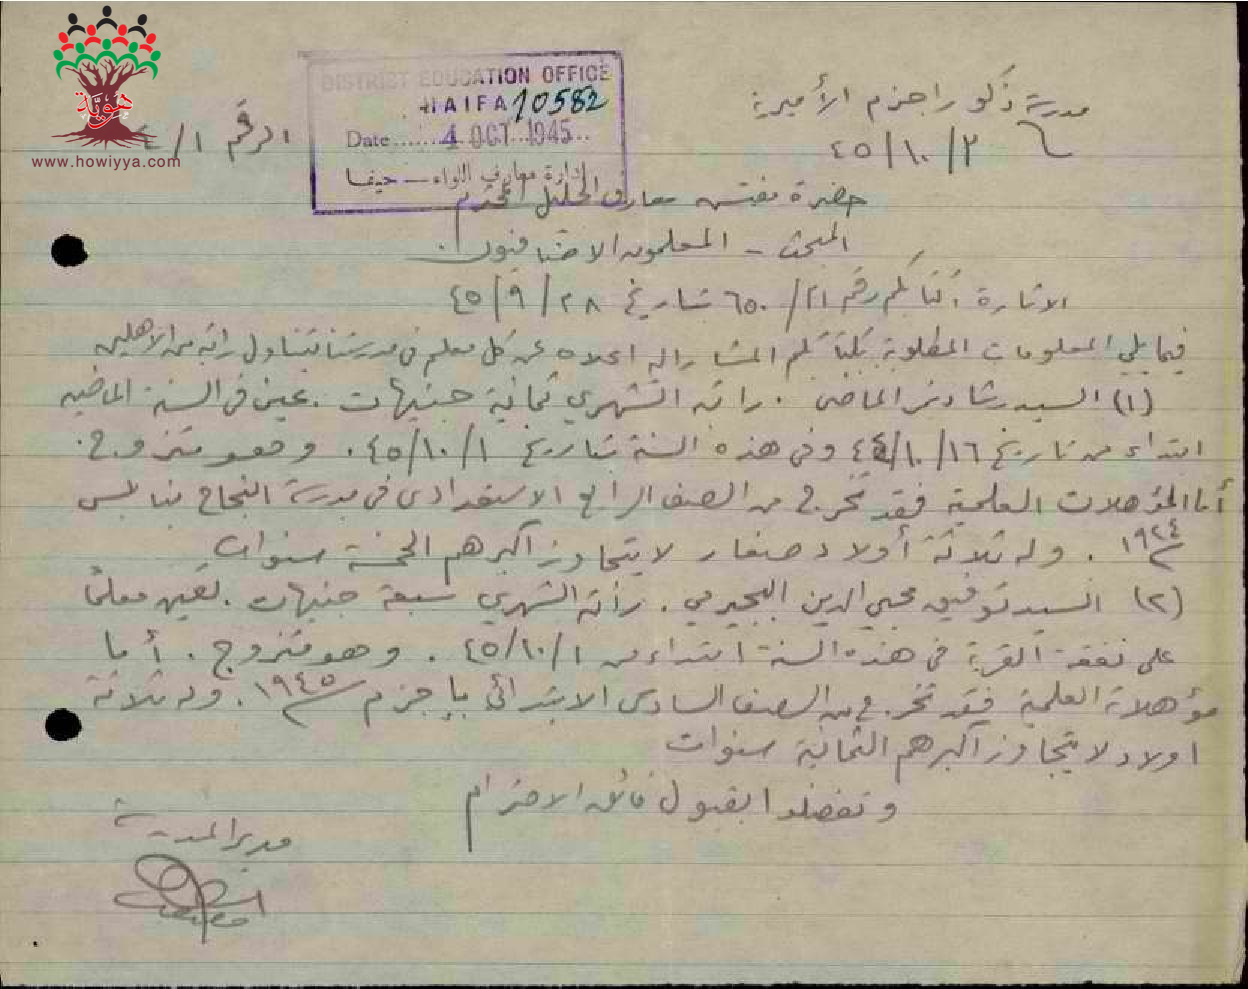 هوية
www.howiyya.com
DISTRICT EDUCATION OFFICE
HAIFA 10582
Date ...... 4 OCT 1945
إدارة معارف اللواء — حيفا
مدرسة ذكور اجزم الأميرية
٤٥/١٠/٢
الرقم ١/٤
حضرة مفتش معارف الجليل المحترم
المبحث - المعلمون الاضافيون.
الاشارة: كتابكم رقم ٢١/٦٥٠ بتاريخ ٤٥/٩/٢٨
فيما يلي المعلومات المطلوبة بكتابكم المشار اليه اعلاه عن كل معلم في مدرستنا يتناول راتبه من الاهلين
(١) السيد رشاد الماضي. راتبه الشهري ثمانية جنيهات. عين في السنة الماضية
ابتداء من تاريخ ٤٤/١٠/١٦ وفي هذه السنة بتاريخ ٤٥/١٠/١. وهو متزوج.
أما المؤهلات العلمية فقد تخرج من الصف الرابع الاستعدادي في مدرسة النجاح بنابلس
سنة ١٩٢٤. وله ثلاثة أولاد صغار لا يتجاوز أكبرهم الخمسة سنوات
(٢) السيد توفيق محيي الدين البجيرمي. راتبه الشهري سبعة جنيهات. تعين معلمًا
على نفقة القرية في هذه السنة ابتداء من ٤٥/١٠/١. وهو متزوج. أما
مؤهلاته العلمية فقد تخرج من الصف السادس الابتدائي بإجزم سنة ١٩٤٥. وله ثلاثة
اولاد لا يتجاوز أكبرهم الثمانية سنوات
وتفضلوا بقبول فائق الاحترام
مدير المدرسة